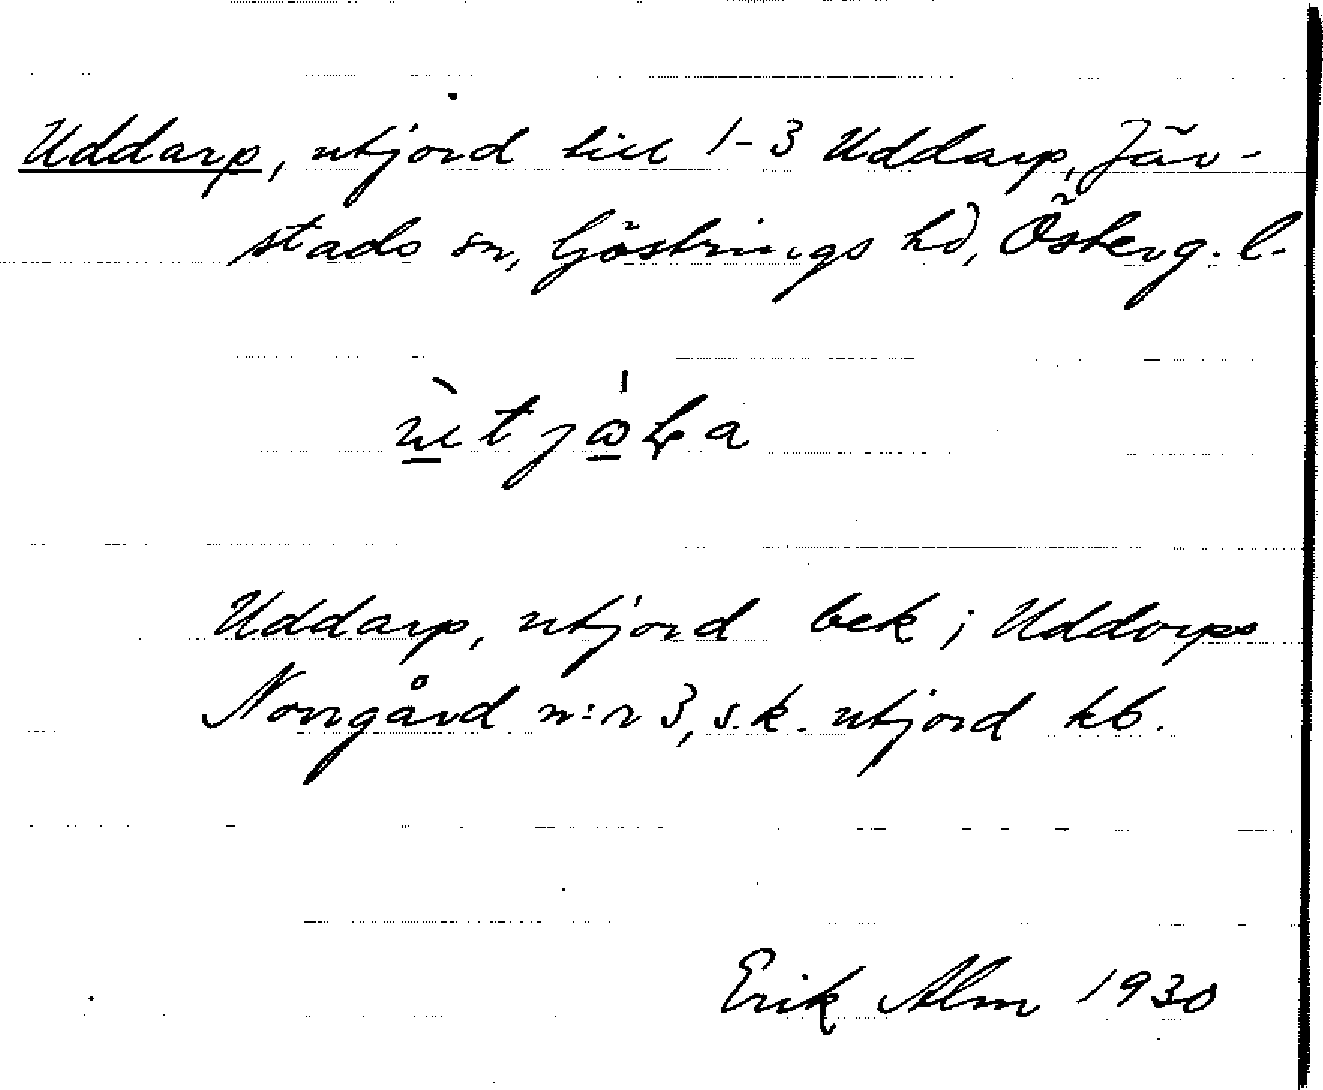 Uddarp, utjord till 1-3 Uddarp, Järstads sn, Göstrings hd, Österg. l.
Uddarp, utjord bek; Uddorps
Norrgård n:r 3, s.k. utjord kb.
Erik Alm 1930